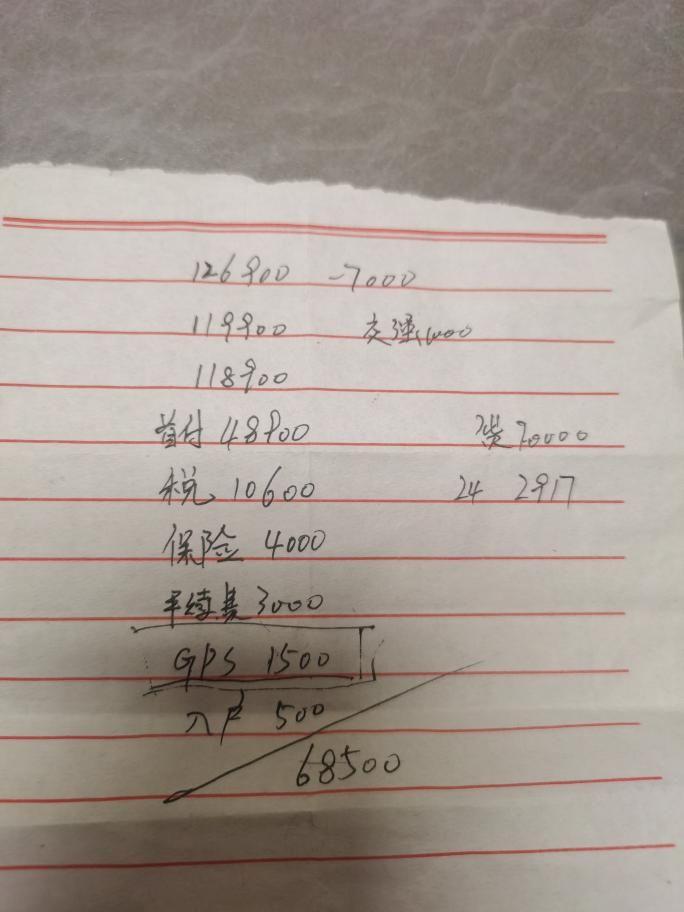 126900 -7000
119900 交强1000
118900
首付 48900 贷70000
税 10600 24 2917
保险 4000
手续费 3000
GPS 1500
入户 500
68500